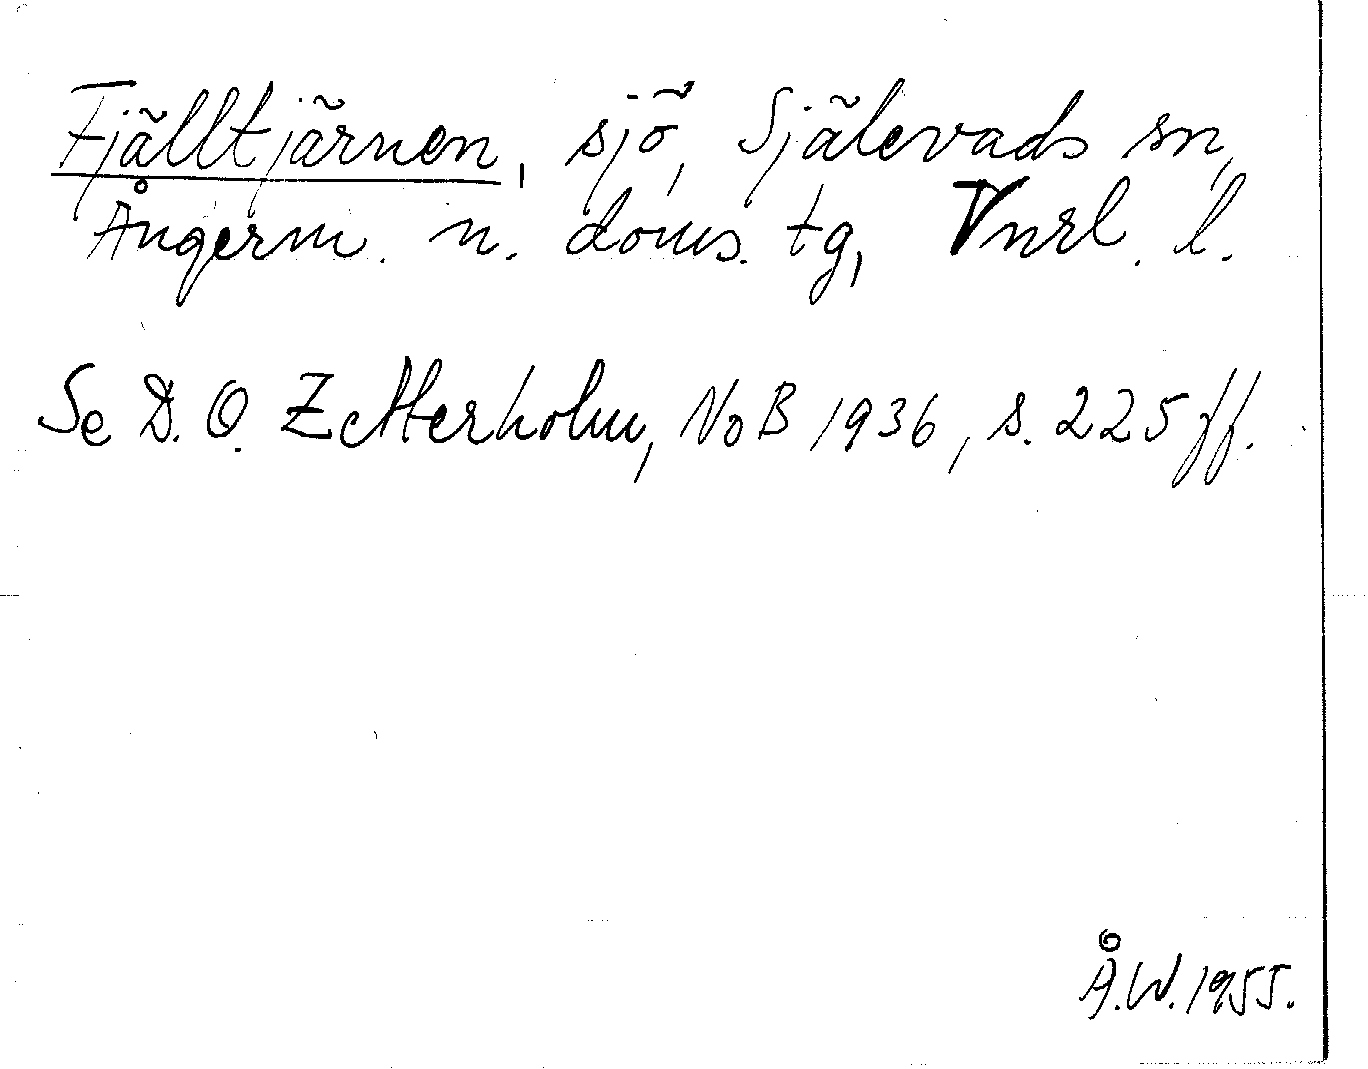 Fjälltjärnen, sjö, Själevads sn,
Ångerm. n. doms. tg, Vnrl. l.
Se D. O. Zetterholm, NoB 1936, s. 225 ff.
Å.W. 1955.